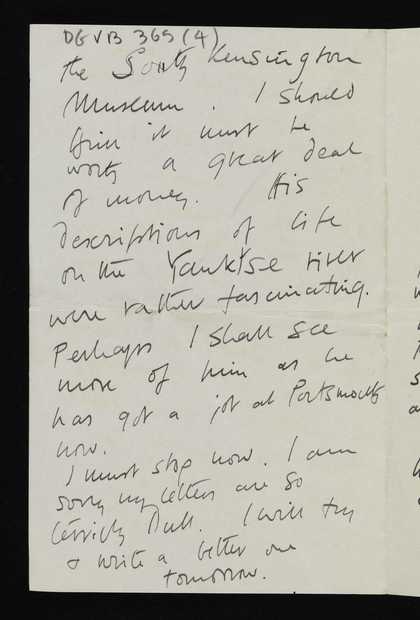 DGVB 369 (4)
the South Kensington
Museum. I should
think it must be
worth a great deal
of money. His
descriptions of life
on the Yanktse river
were rather fascinating.
Perhaps I shall see
more of him as he
has got a job at Portsmouth
now.
I must stop now. I am
sorry my letters are so
terribly Dull. I will try
& write a better one
tomorrow.